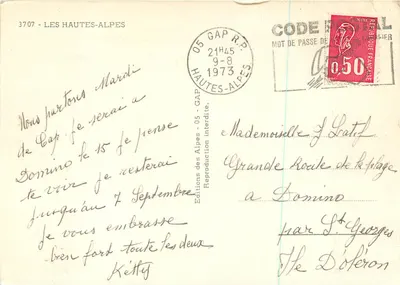 3707 - LES HAUTES-ALPES
05 GAP R.P.
21H45
9-8
1973
HAUTES-ALPES
CODE POSTAL
MOT DE PASSE DE
0,50
REPUBLIQUE FRANÇAISE
Editions des Alpes - 05 - GAP
Reproduction interdite.
Nous partons Mardi
de Gap. je serai a
Domino le 15 je pense
te voir je resterai
jusqu'au 7 Septembre
je vous embrasse
bien fort toute les deux
Ketty
Mademoiselle J
Grande Route de la plage
a Domino
par St Georges
Ile Doléron